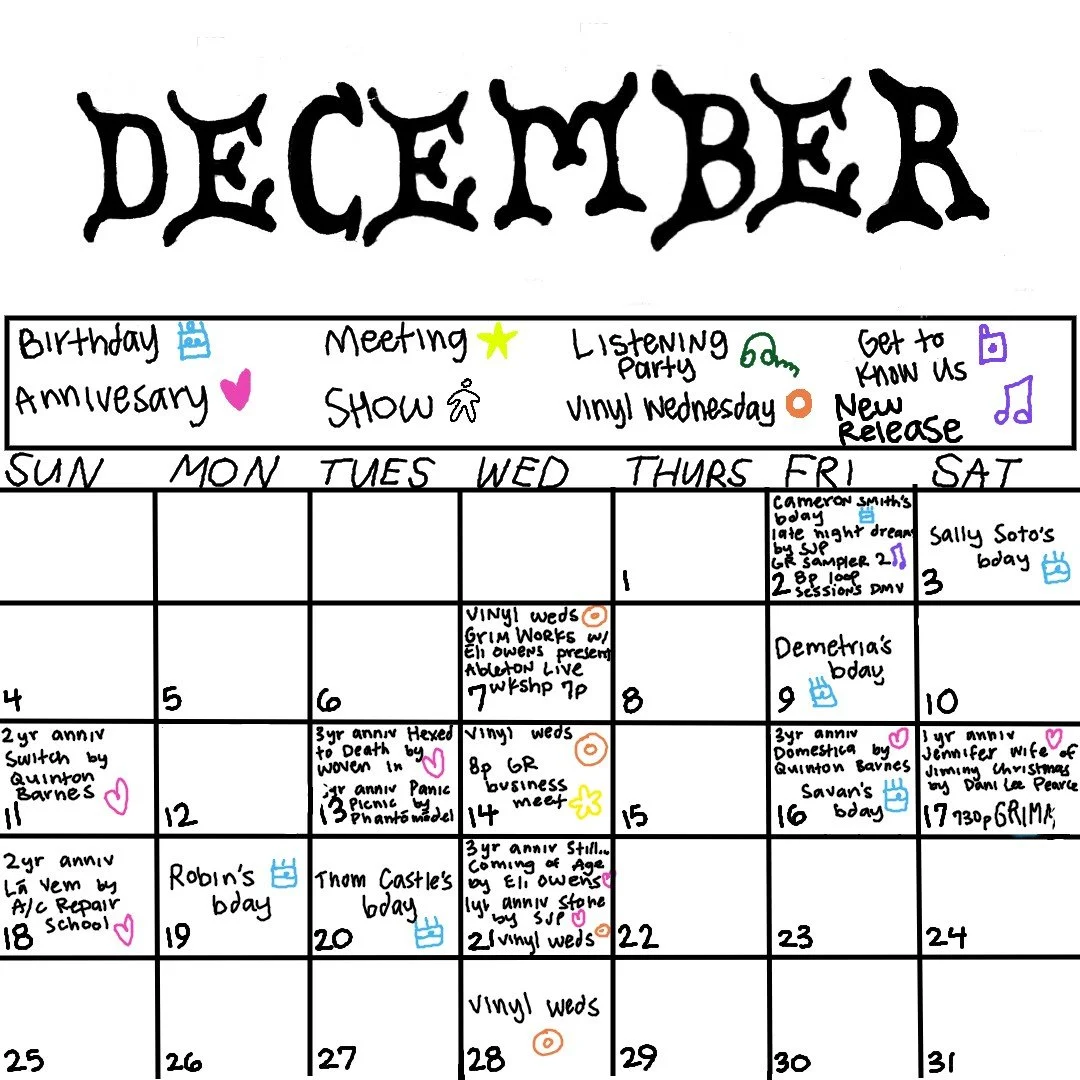 DECEMBER
Birthday
Meeting
Listening
Party
Get to
Know Us
Annivesary
SHOW
Vinyl Wednesday
New
Release
SUN MON TUES WED THURS FRI SAT
1
Cameron Smith's
bday
late night dream
by SJP
GR Sampler 2
8p loop
2 sessions DMV
Sally Soto's
bday
3
4
5
6
Vinyl weds
Grim Works w/
Eli Owens present
Ableton Live
wkshp 7p
7
8
Demetria's
bday
9
10
2 yr anniv
Switch by
Quinton
Barnes
11
12
3yr anniv Hexed
to Death by
Woven In
1yr anniv Panic
Picnic by
Phantomodel
13
Vinyl weds
8p GR
business
meet
14
15
3yr anniv
Domestica by
Quinton Barnes
Savan's
bday
16
1 yr anniv
Jennifer wife of
Jiminy Christmas
by Dani Lee Pearce
17 730p GRIMA,
2 yr anniv
Lā Vem by
A/C Repair
School
18
Robin's
bday
19
Thom Castle's
bday
20
3 yr anniv Still...
Coming of Age
by Eli Owens
1yr anniv Stone
by SJP
21 vinyl weds
22
23
24
25
26
27
Vinyl weds
28
29
30
31